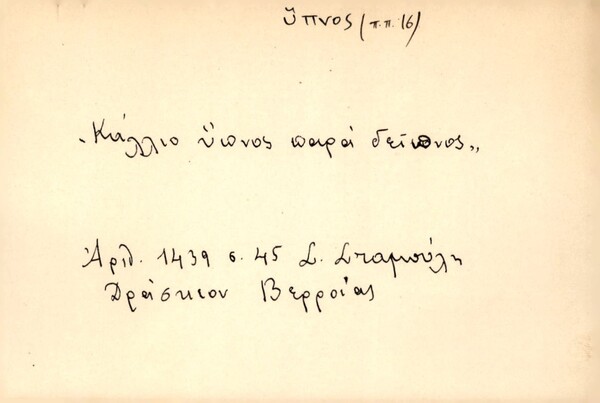 ὕπνος (π.π. 16)
„Κιάλλιο ὕπνος παρὰ δεῖπνος„
Ἀριθ. 1439 σ. 45 Σ. Σταμούλη
Δράσκιον Βερροίας